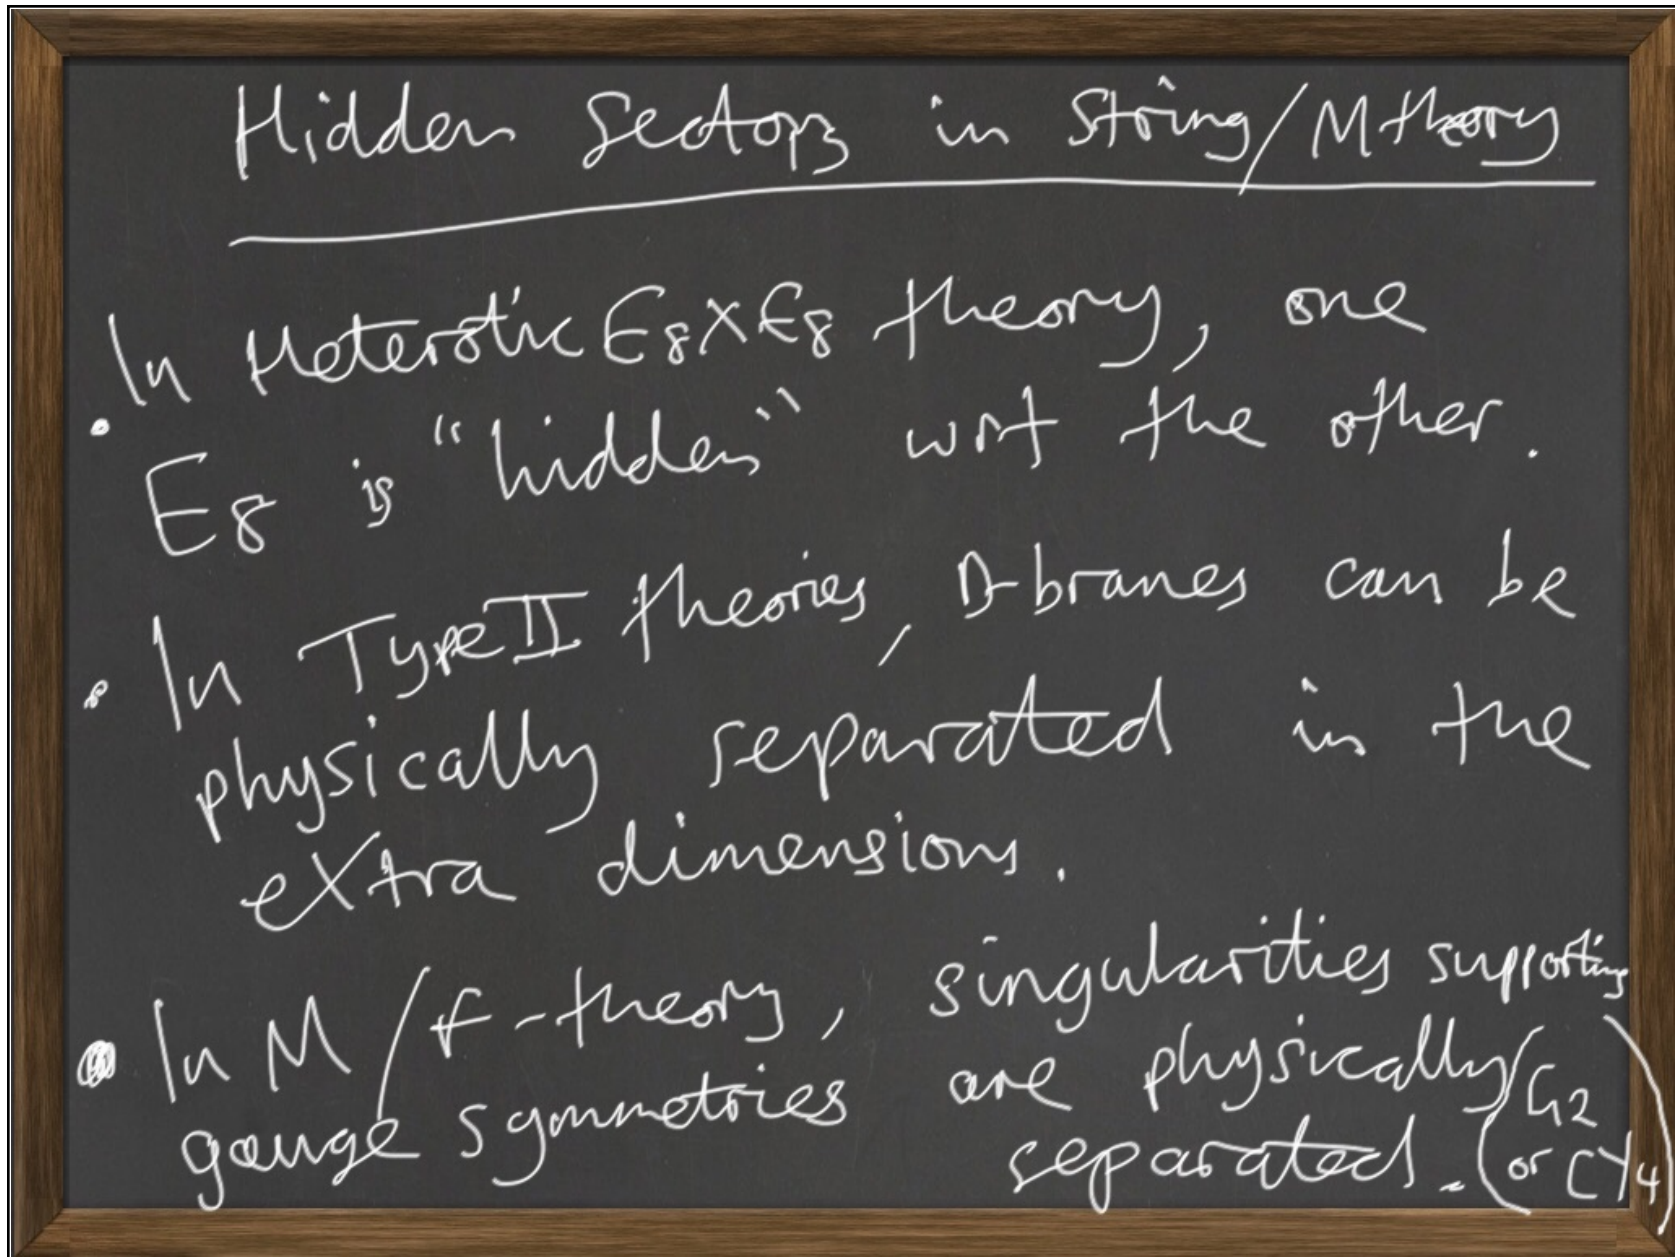 Hidden Sectors in String/M theory
• In Heterotic E8×E8 theory, one
E8 is "hidden" wrt the other.
• In Type II theories, D-branes can be
physically separated in the
extra dimensions.
• In M/F-theory, singularities supporting
gauge symmetries are physically
separated. (G2 or CY4)